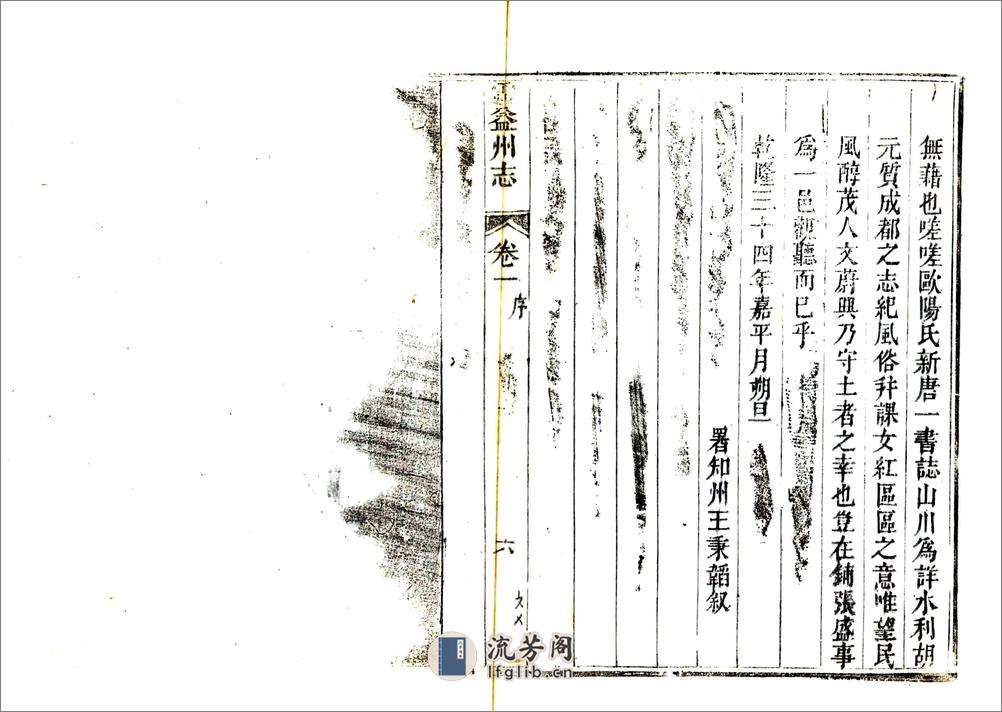 無藉也嗟嗟歐陽氏新唐一書誌山川為詳水利胡
元質成都之志紀風俗幷課女紅區區之意惟望民
風醇茂人文蔚興乃守土者之幸也豈在鋪張盛事
為一邑觀聽而已乎
乾隆三十四年嘉平月朔旦
署知州王秉韜叙
益州志
卷一
序
六
流芳阁
lfglib.cn